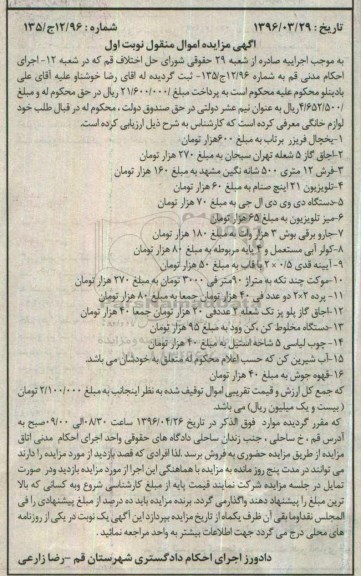 تاریخ : ۱۳۹۶/۰۳/۲۹ شماره : ۱۲/۹۶ج/۱۳۵
آگهی مزایده اموال منقول نوبت اول
به موجب اجراییه صادره از شعبه ۲۹ حقوقی شورای حل اختلاف قم که در شعبه ۱۲- اجرای
احکام مدنی قم به شماره ۱۲/۹۶ج/۱۳۵- ثبت گردیده له اقای رضا خوشناو علیه آقای علی
بادینلو محکوم علیه محکوم است به پرداخت مبلغ ۲۱/۶۰۰/۰۰۰/ ریال در حق محکوم له و مبلغ
۴/۶۵۲/۵۰۰/ریال به عنوان نیم عشر دولتی در حق صندوق دولت ، محکوم له در قبال طلب خود
لوازم خانگی معرفی کرده است که کارشناس به شرح ذیل ارزیابی کرده است.
۱-یخچال فریزر برتاب به مبلغ ۶۰۰هزار تومان
۲-اجاق گاز ۵ شعله تهران سبحان به مبلغ ۲۷۰ هزار تومان
۳-فرش ۱۲ متری ۵۰۰ شانه نگین مشهد به مبلغ ۱۶۰ هزار تومان
۴-تلویزیون ۲۱ اینچ صنام به مبلغ ۶۰ هزار تومان
۵-دستگاه دی وی دی ال جی به مبلغ ۷۰ هزار تومان
۶-میز تلویزیون به مبلغ ۶۵هزار تومان
۷-جارو برقی بوش ۳ هزار وات به مبلغ ۱۸۰ هزار تومان
۸-کولر آبی مستعمل و ۴ پایه مربوطه به مبلغ ۸۰ هزار تومان
۹- آیینه قدی ۰/۵ × ۲ با قاب به مبلغ ۵۰ هزار تومان
۱۰-موکت چند تکه به متراژ ۹۰متر فی ۳۰۰۰ تومان به مبلغ ۲۷۰ هزار تومان
۱۱- پرده ۲×۲ دو عدد فی ۴۰ هزار تومان جمعا به مبلغ ۸۰ هزار تومان
۱۲-اجاق گاز پلو پز تک شعله ۲ عددفی ۲۰ هزار تومان جمعا ۴۰ هزار تومان
۱۳-دستگاه مخلوط کن ،کن وود به مبلغ ۹۵ هزار تومان
۱۴-چوب لباسی ۵ شاخه استیل به مبلغ ۴۰ هزار تومان
۱۵-آب شیرین کن که حسب اعلام محکوم له متعلق به خودشان می باشد.
۱۶-قهوه جوش به مبلغ ۴۰ هزار تومان
که جمع کل ارزش و قیمت تقریبی اموال توقیف شده به نظر اینجانب به مبلغ ۲/۱۰۰/۰۰۰ تومان
( بیست و یک میلیون ریال) می باشد.
که مقرر گردیده موارد فوق الذکر در تاریخ ۱۳۹۶/۰۴/۲۶ ساعت ۰۸/۳۰الی ۰۹/۰۰صبح به
آدرس قم ، خ ساحلی ، جنب زندان ساحلی دادگاه های حقوقی واحد اجرای احکام مدنی اتاق
مزایده از طریق مزایده حضوری به فروش برسد .لذا افرادی که قصد بازدید از مورد مزایده را دارند
می توانند در مدت پنج روز مانده به مزایده با هماهنگی این اجرا از مورد مزایده بازدید ودر صورت
تمایل در جلسه مزایده شرکت نمایند قیمت پایه از مبلغ کارشناسی شروع وبه کسانی که بالا
ترین مبلغ را پیشنهاد دهند واگذارمی گردد. برنده مزایده باید ده درصد از مبلغ پیشنهادی را فی
المجلس نقداوما بقی آن ظرف یکماه از تاریخ مزایده بپردازد این آگهی یک نوبت در یکی از روزنامه
های محلی درج می گردد جهت اطلاعات بیشتر به واحد مراجعه نمائید.
دادورز اجرای احکام دادگستری شهرستان قم -رضا زارعی